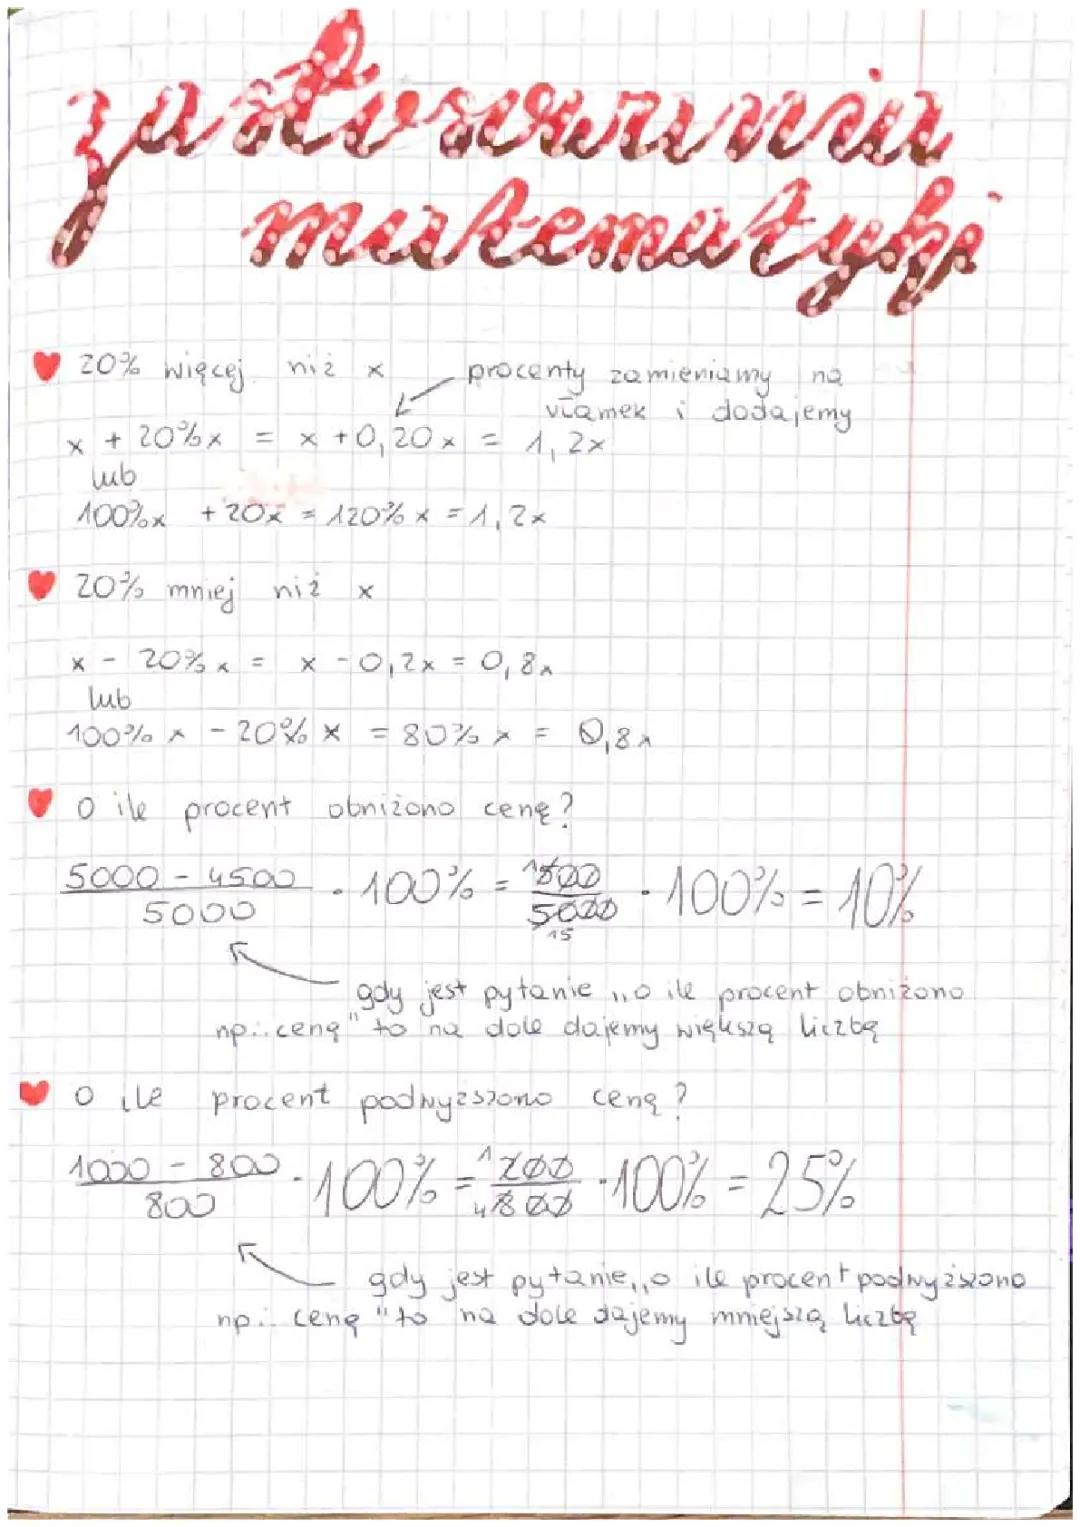 zastosowania
matematyki
20% więcej niż x
procenty zamieniamy na
ułamek i dodajemy
x + 20%x = x + 0,20x = 1,2x
lub
100%x + 20x = 120%x = 1,2x
20% mniej niż x
x - 20%x = x - 0,2x = 0,8x
lub
100%x - 20%x = 80%x = 0,8x
O ile procent obniżono cenę?
5000 - 4500 / 5000 · 100% = 500 / 5000 · 100% = 10%
gdy jest pytanie „o ile procent obniżono
np.: cenę" to na dole dajemy większą liczbę
O ile procent podwyższono cenę?
1000 - 800 / 800 · 100% = 200 / 800 · 100% = 25%
gdy jest pytanie „o ile procent podwyższono
np.: cenę" to na dole dajemy mniejszą liczbę